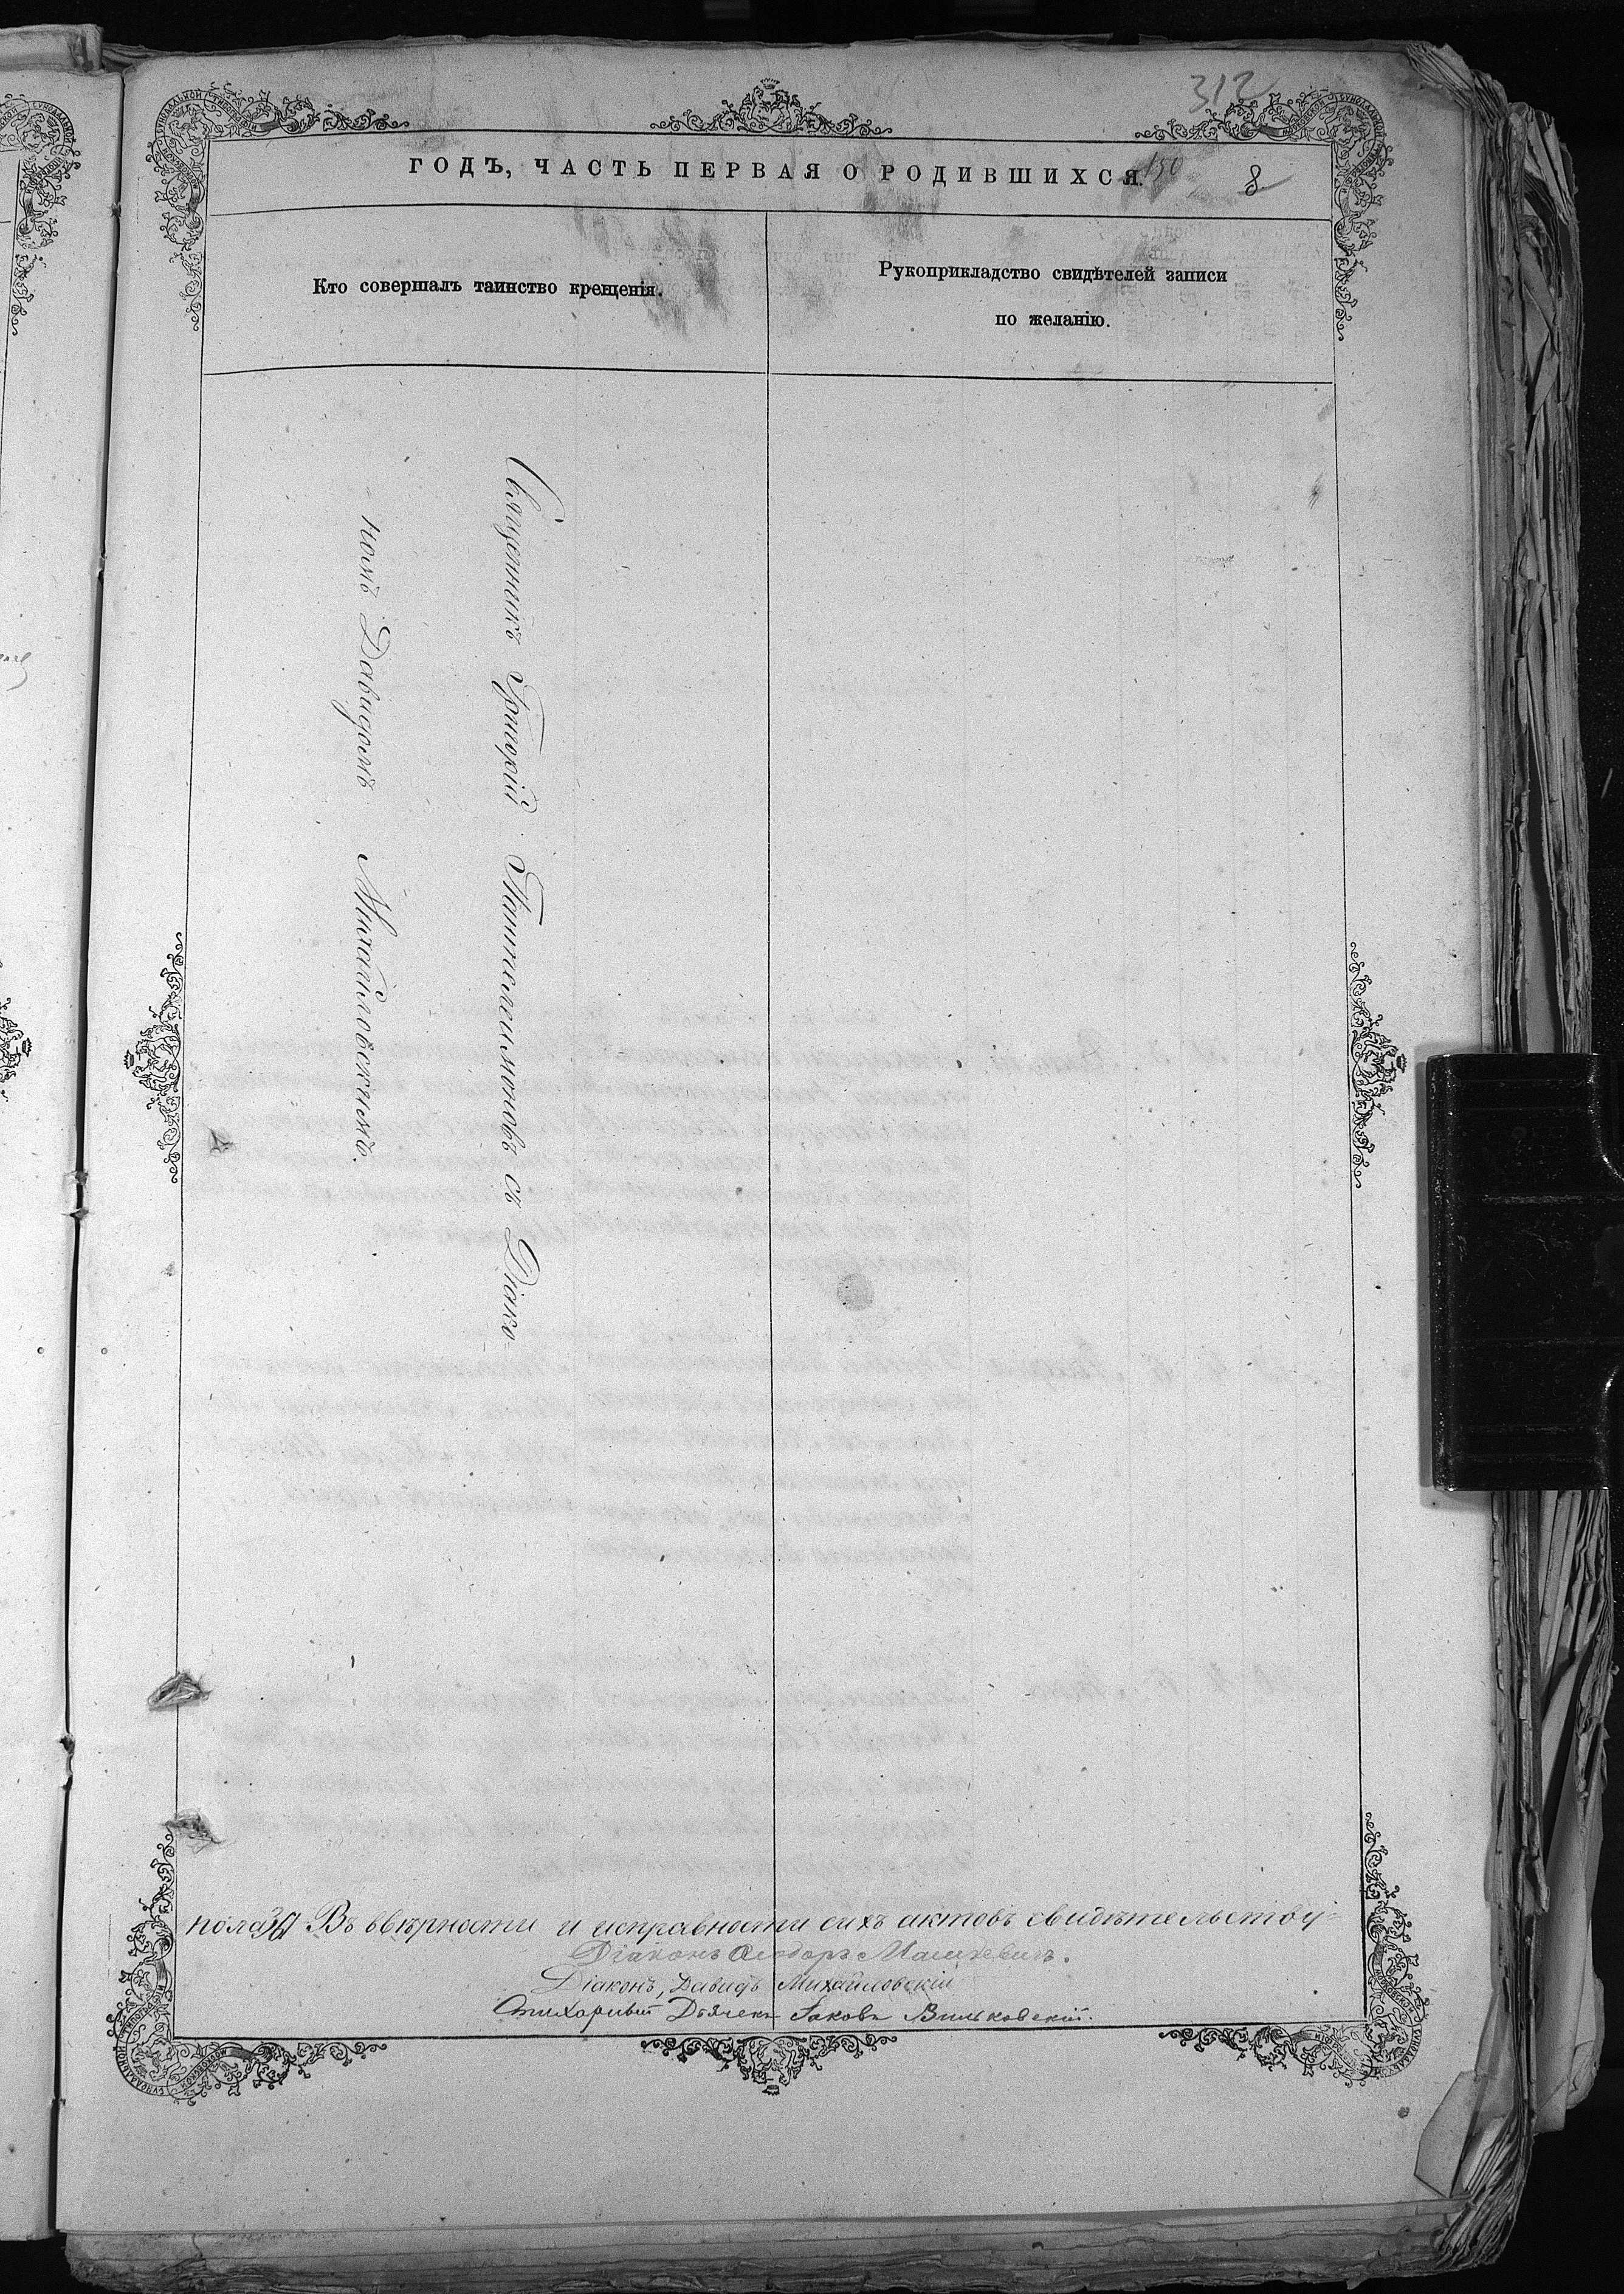 312
ГОДЪ, ЧАСТЬ ПЕРВАЯ О РОДИВШИХСЯ.
150
8
Кто совершалъ таинство крещенія.
Рукоприкладство свидѣтелей записи
по желанію.
Священникъ Григорій Пантелеимоновъ съ Діако
номъ Давидомъ Михайловскимъ.
Въ вѣрности и исправности сихъ актовъ свидѣтельству-
Діаконъ Ѳеодоръ
Діаконъ, Давидъ Михайловскій
Стихарный Дьячекъ Іаковъ Вильковскій.